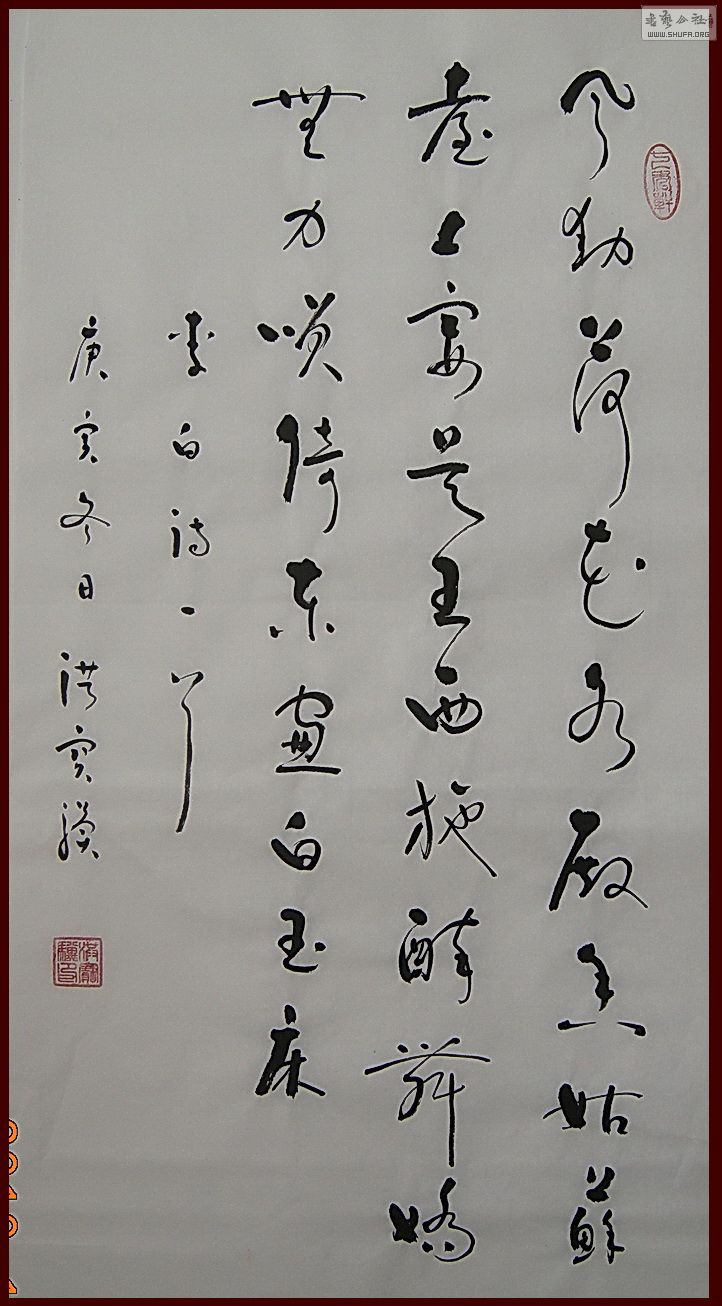 书艺公社
WWW.SHUFA.ORG
風動荷花水殿香姑蘇
臺上宴吴王西施醉舞嬌
無力咲倚东窗白玉床
李白诗一首
庚寅冬日洪